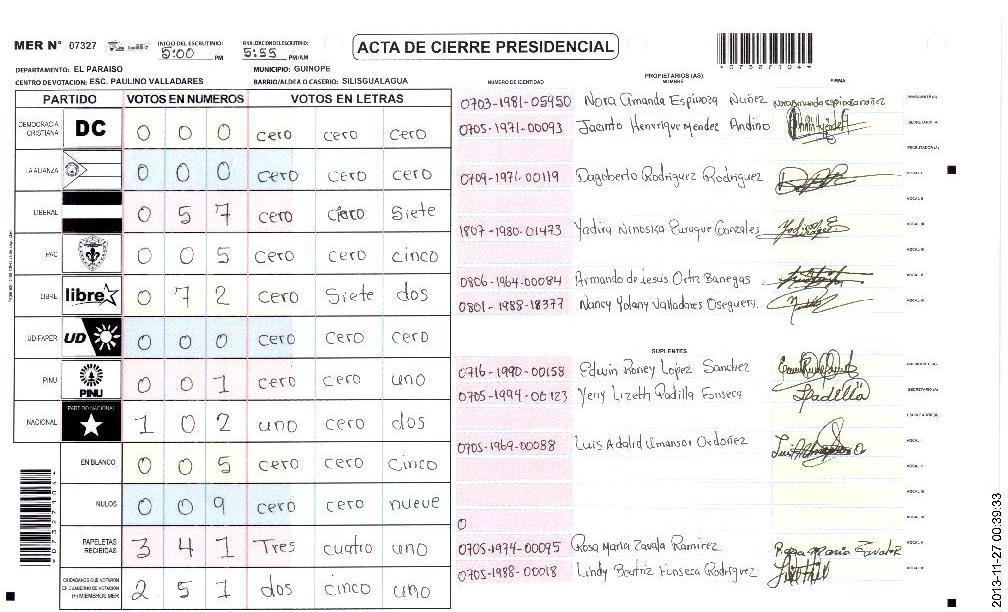 MER N° 07327
INICIO DEL ESCRUTINIO: 5:00 PM
FINALIZACION DEL ESCRUTINIO: 5:55 PM/AM
ACTA DE CIERRE PRESIDENCIAL
073271044
DEPARTAMENTO: EL PARAISO
MUNICIPIO: GUINOPE
CENTRO DE VOTACION: ESC. PAULINO VALLADARES
BARRIO/ALDEA O CASERIO: SILISGUALAGUA
PARTIDO VOTOS EN NUMEROS VOTOS EN LETRAS
DEMOCRACIA CRISTIANA DC 0 0 0 cero cero cero
LA ALIANZA 0 0 0 cero cero cero
LIBERAL 0 5 7 cero Siete
PAC 0 0 5 cero cero cinco
LIBRE libre 0 7 2 cero Siete dos
UD-FAPER UD 0 0 0 cero cero cero
PINU PINU 0 0 1 cero cero uno
NACIONAL PARTIDO NACIONAL 1 0 2 uno cero dos
EN BLANCO 0 0 5 cero cero cinco
NULOS 0 0 9 cero cero nueve
PAPELETAS RECIBIDAS 3 4 1 Tres cuatro uno
CIUDADANOS QUE VOTARON EN CUADERNO DE VOTACION (+) MIEMBROS MER 2 5 1 dos cinco uno
PROPIETARIOS (AS)
NUMERO DE IDENTIDAD NOMBRE FIRMA
0703-1981-05950 Nora Amanda Espinoza Nuñez
0705-1971-00093 Jacinto Henrrique Mendez Andino
0709-1971-00119 Dagoberto Rodriguez Rodriguez
1807-1980-01473 Yadira Ninoska Gonzales
0806-1964-00084 Armando de Jesus Ortiz Banegas
0801-1988-18377 Nancy Yolany Valladares Oseguera
SUPLENTES
0716-1990-00158 Edwin Roney Lopez Sanchez
0705-1994-00123 Yeny Lizeth Padilla Fonseca
0705-1969-00088 Luis Adalid Almansor Ordoñez
0
0705-1974-00095 Rosa Maria Zavala Ramirez
0705-1988-00018 Lindy Beatriz Fonseca Rodriguez
2013-11-27 00:39:33